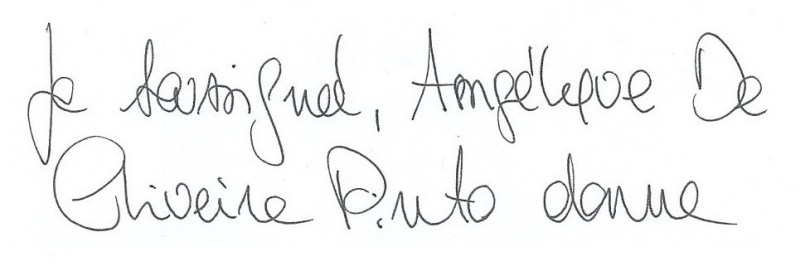 Je soussigné, Angélique De
Oliveira Pinto donne